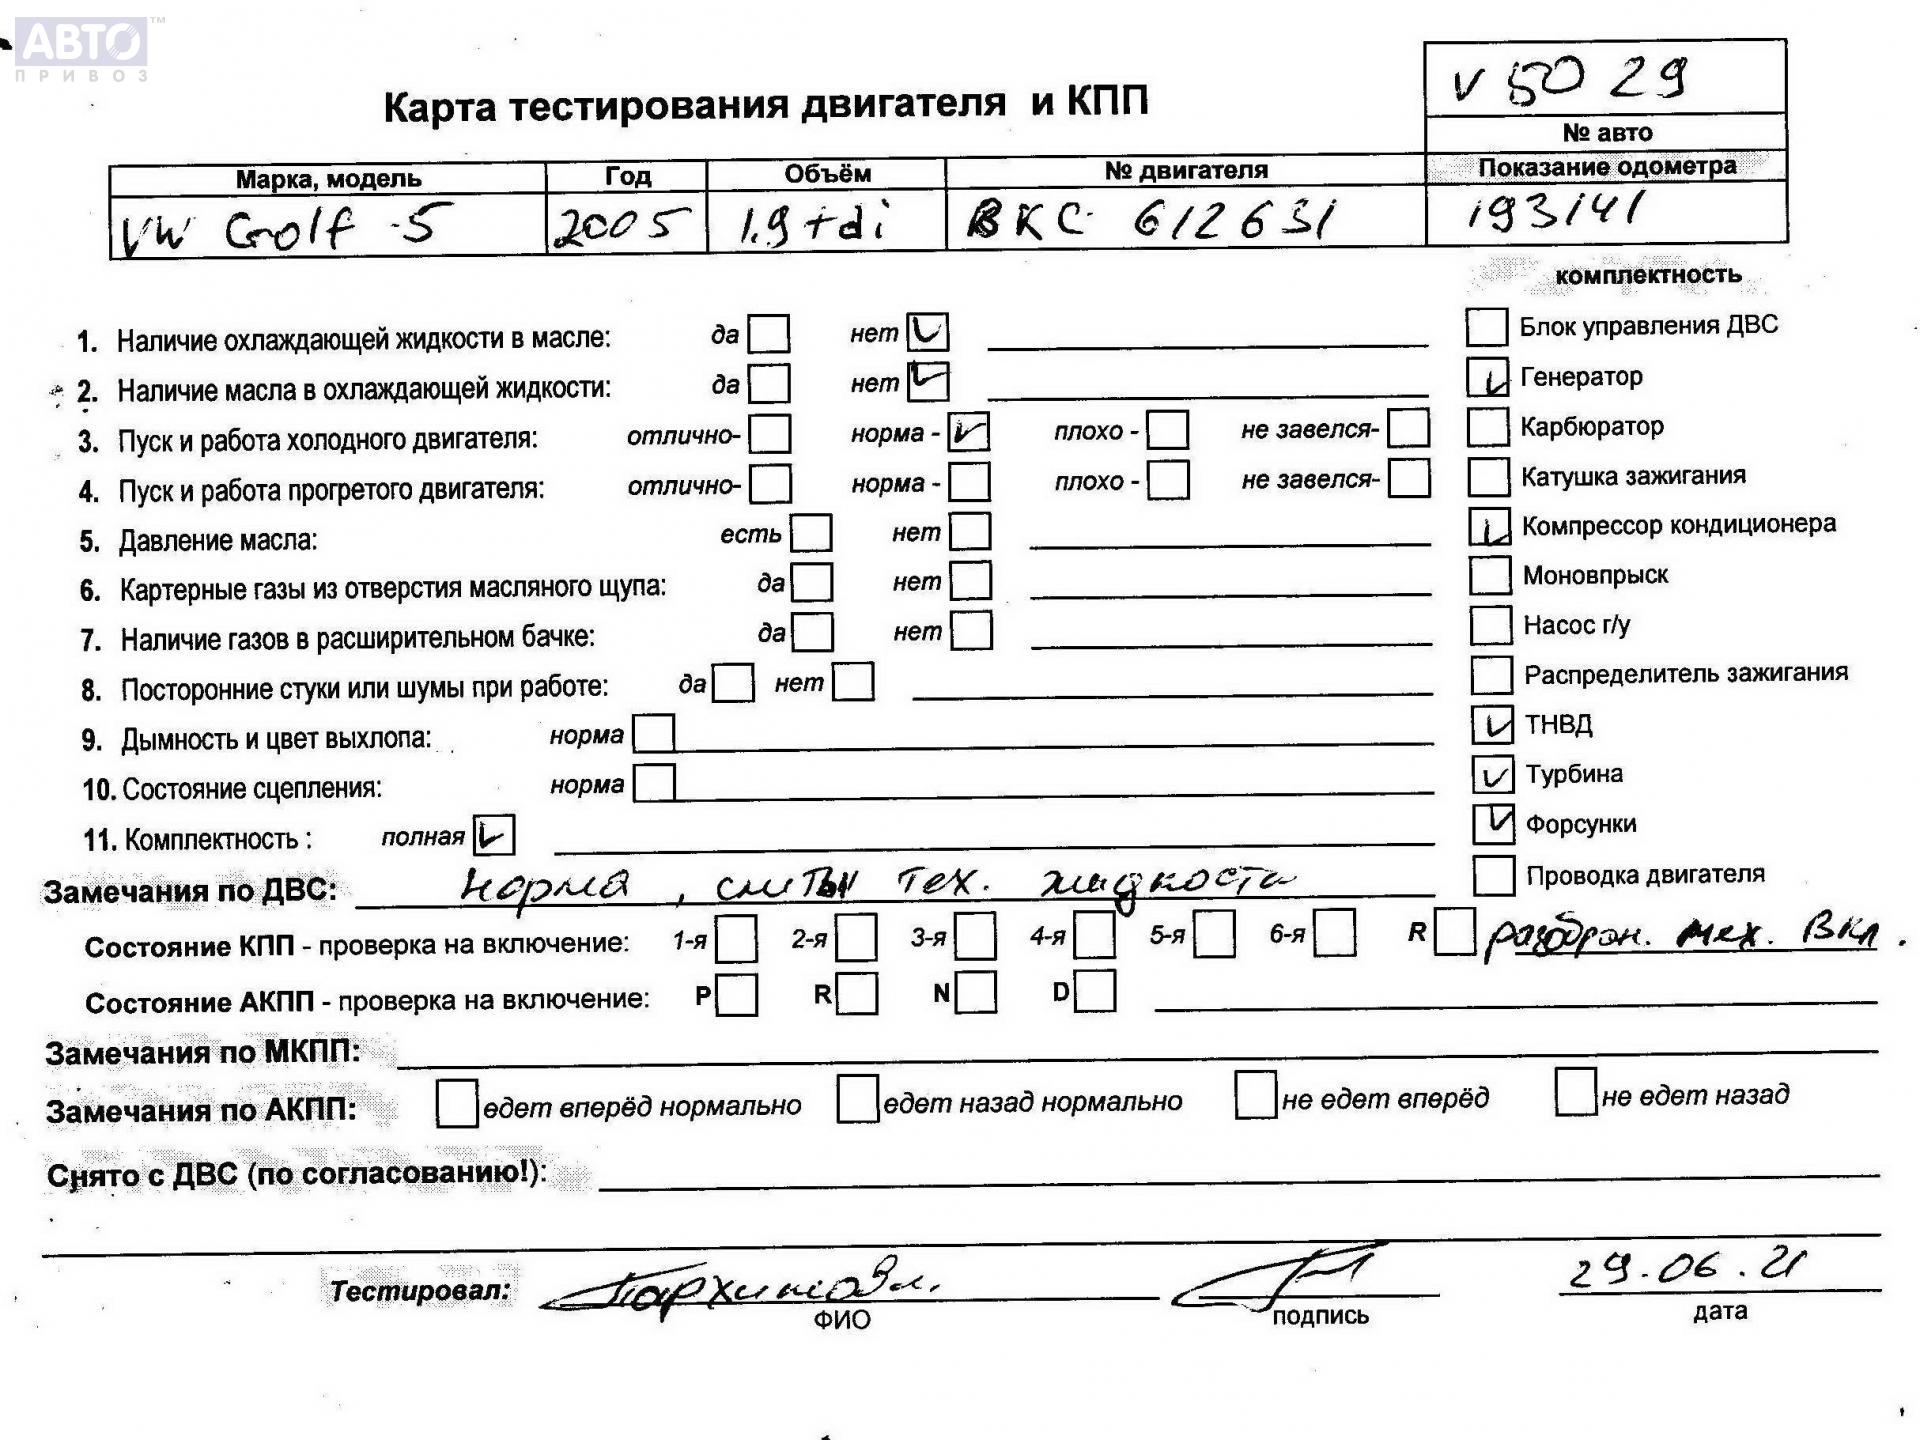 АВТО™
ПРИВОЗ
V 5029
Карта тестирования двигателя и КПП
№ авто
Марка, модель Год Объём № двигателя Показание одометра
VW Golf -5 2005 1.9 tdi BKC 612631 193141
комплектность
1. Наличие охлаждающей жидкости в масле: да нет Блок управления ДВС
2. Наличие масла в охлаждающей жидкости: да нет Генератор
3. Пуск и работа холодного двигателя: отлично- норма - плохо - не завелся- Карбюратор
4. Пуск и работа прогретого двигателя: отлично- норма - плохо - не завелся- Катушка зажигания
5. Давление масла: есть нет Компрессор кондиционера
6. Картерные газы из отверстия масляного щупа: да нет Моновпрыск
7. Наличие газов в расширительном бачке: да нет Насос г/у
8. Посторонние стуки или шумы при работе: да нет Распределитель зажигания
9. Дымность и цвет выхлопа: норма ТНВД
10. Состояние сцепления: норма Турбина
11. Комплектность : полная Форсунки
Замечания по ДВС: норма, слиты тех. жидкости Проводка двигателя
Состояние КПП - проверка на включение: 1-я 2-я 3-я 4-я 5-я 6-я R разобран. мех. вкл.
Состояние АКПП - проверка на включение: P R N D
Замечания по МКПП:
Замечания по АКПП: едет вперёд нормально едет назад нормально не едет вперёд не едет назад
Снято с ДВС (по согласованию!):
Тестировал: 29.06.21
ФИО подпись дата